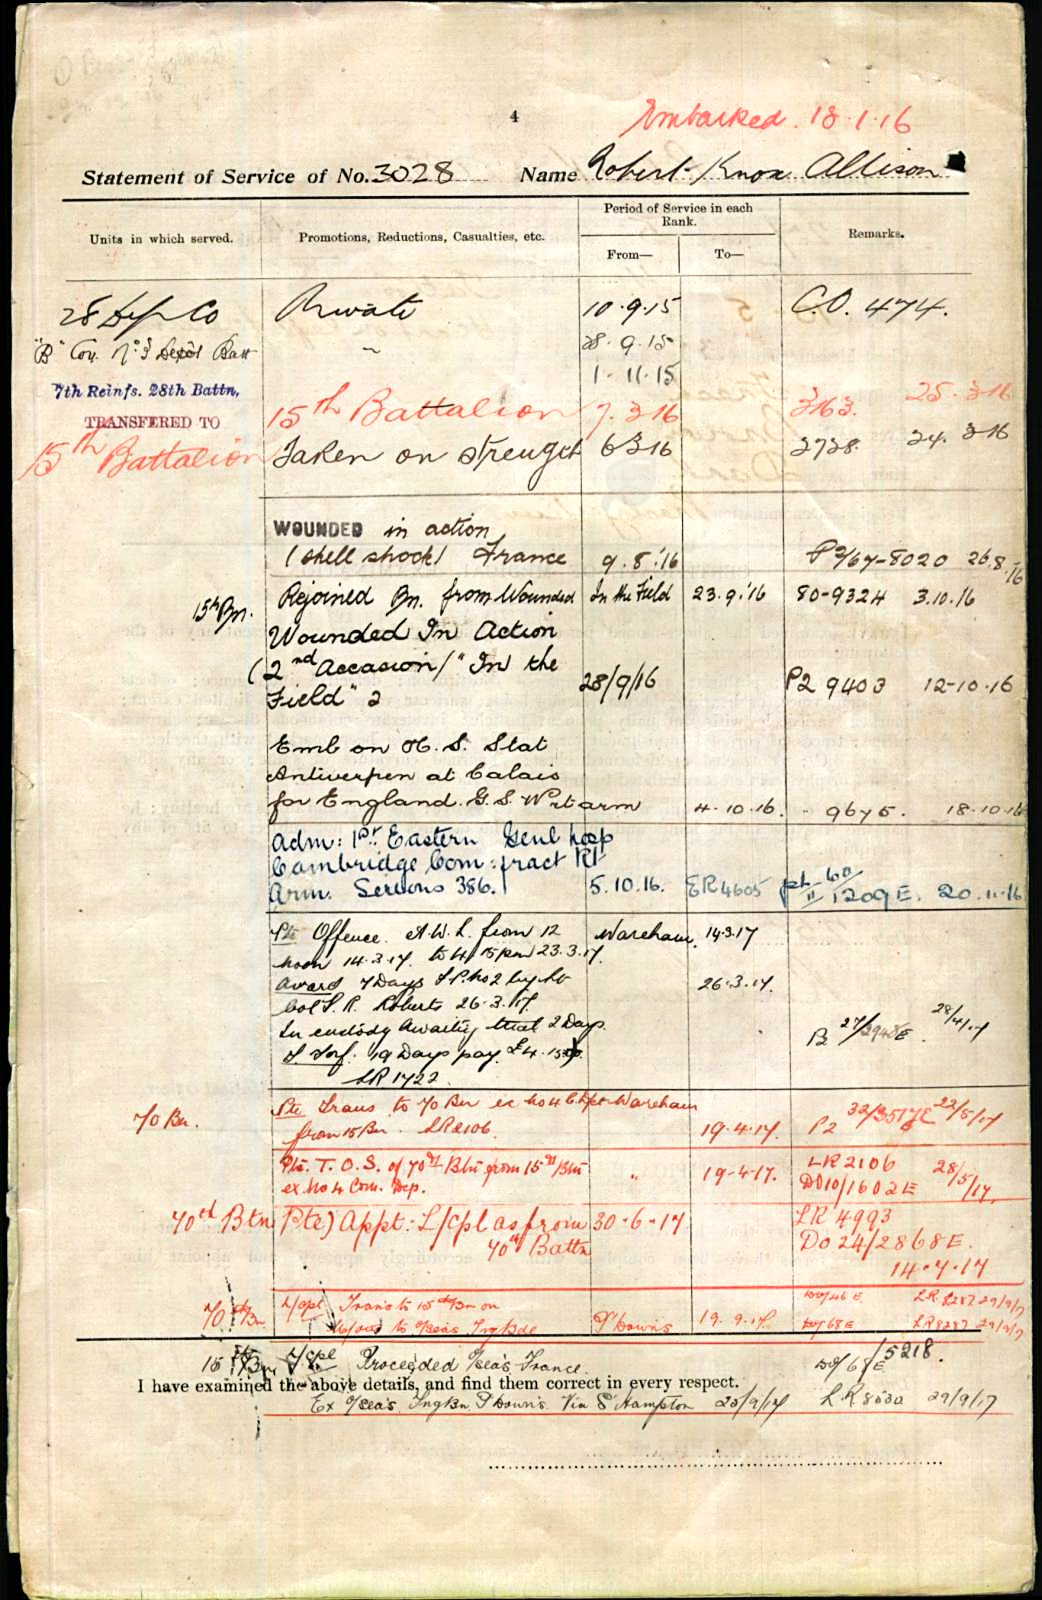 4
Embarked. 18.1.16
Statement of Service of No. 3028 Name Robert Knox Allison
Units in which served. Promotions, Reductions, Casualties, etc. Period of Service in each Rank. From— To— Remarks.
28 Dep Co Private 10.9.15 C.O. 474.
"B" Coy. No 3 Depot Batt 28.9.15
7th Reinfs. 28th Battn. 1.11.15
TRANSFERED TO
15th Battalion 7.3.16 3163. 25.3.16
15th Battalion Taken on strength 6 3 16 2738. 24.3.16
WOUNDED in action
(shell shock) France 9.8.'16 8020 26.8.'16
15th Bn. Rejoined Bn. from Wounded In the Field 23.9.'16 80-9324 3.10.16
Wounded In Action
(2nd Accasion) "In the
Field" 2 28/9/16 P2 9403 12-10-16
Emb on H.S. Stat
Antwerpen at Calais
for England. G.S.W rt arm 4.10.16. 9675. 18.10.16
Adm: 1st Eastern Genl hosp
Cambridge Com: fract Rt
Arm. Serious 386. 5.10.16. ER 4605 1209E. 20.11.16
Pte Offence. A.W.L. from 12 Wareham. 14.3.17
noon 14.3.17. to 4.15pm 23.3.17.
Award 7 Days F.P. No 2 by Lt 26.3.17.
Col S.R. Roberts 26.3.17.
In custody Awaiting trial 2 Days. B 27/2948E 28/4/17
T. Forf. 19 Days pay £4.15
LR 1722.
70 Bn. Pte Trans to 70 Bn ex No 4 C Dpt Wareham
from 15 Bn. LR 2106. 19.4.17. P2 32/3517E 22/5/17
Pte. T.O.S. of 70th Btn from 15th Btn " 19-4-17. LR 2106 28/5/17.
ex No 4 Com. Dep. DO10/1602E
70th Btn Pte) Appt: L/cpl as from 30-6-17 LR 4993
70th Battn DO 24/2868E.
14.7.17
70th Bn L/cpl Trans to 15th Bn on DO/46E LR 8287 29/9/17
to O/seas Trng Bde P'Downs 19.9.17. DO/68E LR 8287 29/9/17
15th Bn L/cpl Proceeded O/seas France. DO/68E/5218.
I have examined the above details, and find them correct in every respect.
Ex O/seas Trng Bn P'Downs Via S'Hampton 25/9/17 LR 29/9/17